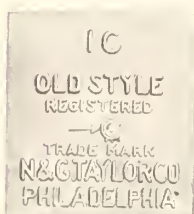 IC
OLD STYLE
REGISTERED
TRADE MARK
N&GTAYLORCO
PHILADELPHIA